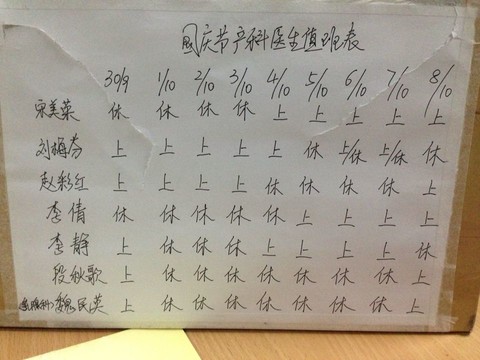 国庆节产科医生值班表
30/9 1/10 2/10 3/10 4/10 5/10 6/10 7/10 8/10
宋美荣 休 休 休 休 上 上 上 上 上
刘梅芬 上 上 上 上 上 休 上/休 上/休 休
赵彩红 上 上 上 上 休 休 休 休 上
李倩 休 休 休 休 休 上 上 上 上
李静 上 休 休 休 上 上 上 上 休
段秋歌 上 休 休 休 休 休 休 休 上
魏民英 上 休 休 休 休 休 休 休 上